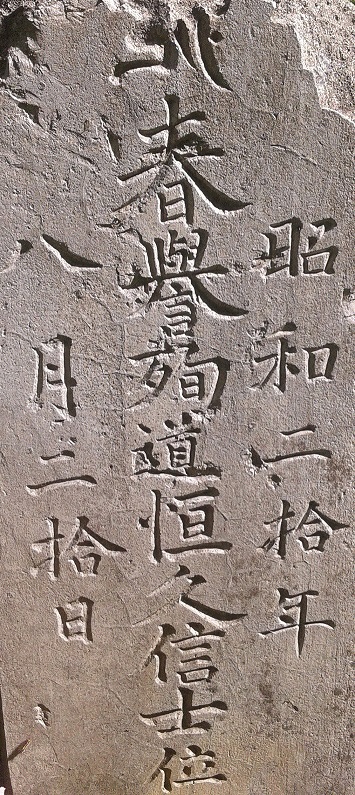 昭和二拾年
春譽殉道恒久信士位
八月三拾日